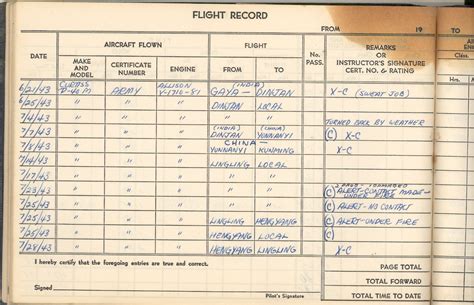 FLIGHT RECORD
FROM 19 TO
DATE AIRCRAFT FLOWN FLIGHT No. PASS. REMARKS OR INSTRUCTOR'S SIGNATURE CERT. NO. & RATING
MAKE AND MODEL CERTIFICATE NUMBER ENGINE FROM TO Hrs.
6/21/43 CURTISS P-40M ARMY ALLISON V-1710-81 GAYA - (INDIA) DINJAN X-C (SWEAT JOB)
6/25/43 " " " DINJAN LOCAL
7/4/43 " " " " " TURNED BACK BY WEATHER
7/4/43 " " " (INDIA) DINJAN (CHINA) YUNNANYI (C) X-C
7/4/43 " " " -CHINA- YUNNANYI KUNMING X-C
7/14/43 " " " LINGLING LOCAL
7/17/43 " " " " "
7/23/43 " " " " " (C) ALERT-CONTACT MADE- UNDER FIRE
7/25/43 " " " " " (C) ALERT-NO CONTACT
7/25/43 " " " LINGLING HENGYANG (C) ALERT-UNDER FIRE
7/25/43 " " " HENGYANG LOCAL (C)
7/28/43 " " " HENGYANG LINGLING X-C
I hereby certify that the foregoing entries are true and correct.
PAGE TOTAL
TOTAL FORWARD
Signed
Pilot's Signature
TOTAL TIME TO DATE